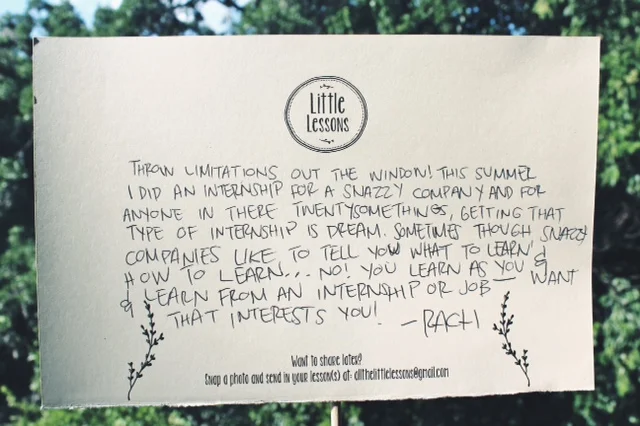 Little
Lessons
THROW LIMITATIONS OUT THE WINDOW! THIS SUMMER
I DID AN INTERNSHIP FOR A SNAZZY COMPANY AND FOR
ANYONE IN THERE TWENTYSOMETHINGS, GETTING THAT
TYPE OF INTERNSHIP IS DREAM. SOMETIMES THOUGH SNAZZY
COMPANIES LIKE TO TELL YOU WHAT TO LEARN &
HOW TO LEARN... NO! YOU LEARN AS YOU WANT
& LEARN FROM AN INTERNSHIP OR JOB
THAT INTERESTS YOU!
Want to share later?
Snap a photo and send in your lesson(s) at: allthelittlelessons@gmail.com